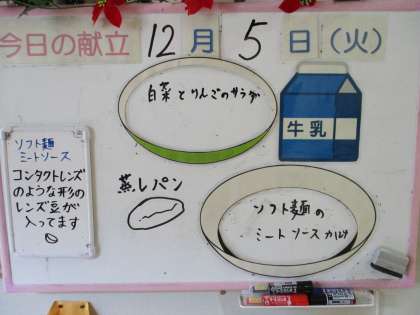 今日の献立 12月5日(火)
白菜とりんごのサラダ
牛乳
ソフト麺
ミートソース
コンタクトレンズ
のような形の
レンズ豆が
入ってます
蒸しパン
ソフト麺の
ミートソース